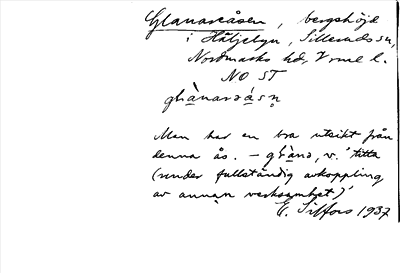 Glanareåsen, bergshöjd
i Hältjebyn, Sillerudss sn,
Nordmarks hd, Vrml l.
NO ST
glànarəásn̥
Man har en bra utsikt från
denna ås. – glànə, v. 'titta
(under fullständig avkoppling
av annan verksamhet)'
E. Siffors 1937